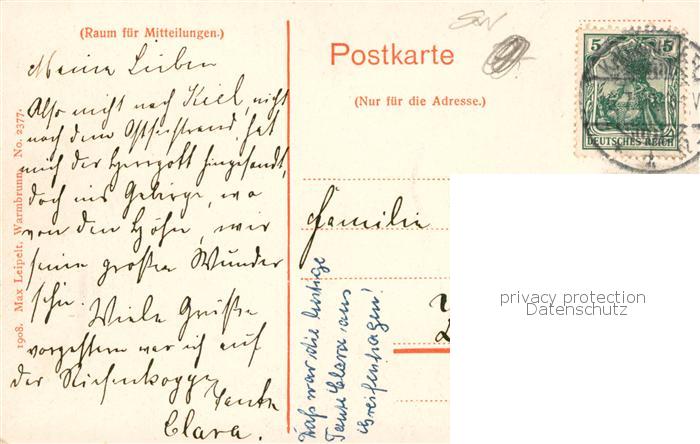 (Raum für Mitteilungen.)
Meine Lieben
Also nicht nach Kiel, nicht
nach dem Ostseestrand, hat
mich der Herrgott hingesandt,
doch ins Gebirge, wo
von den Höhn, wir
seine großen Wunder
sehn. Viele Grüße
vorgestern war ich auf
der Riesenkoppe
Tante
Clara.
1908. Max Leipelt, Warmbrunn. No. 2377.
Postkarte
(Nur für die Adresse.)
5 5
DEUTSCHES REICH
Familie
Das war die lustige
Tante Clara aus
Greifenhagen!
privacy protection
Datenschutz